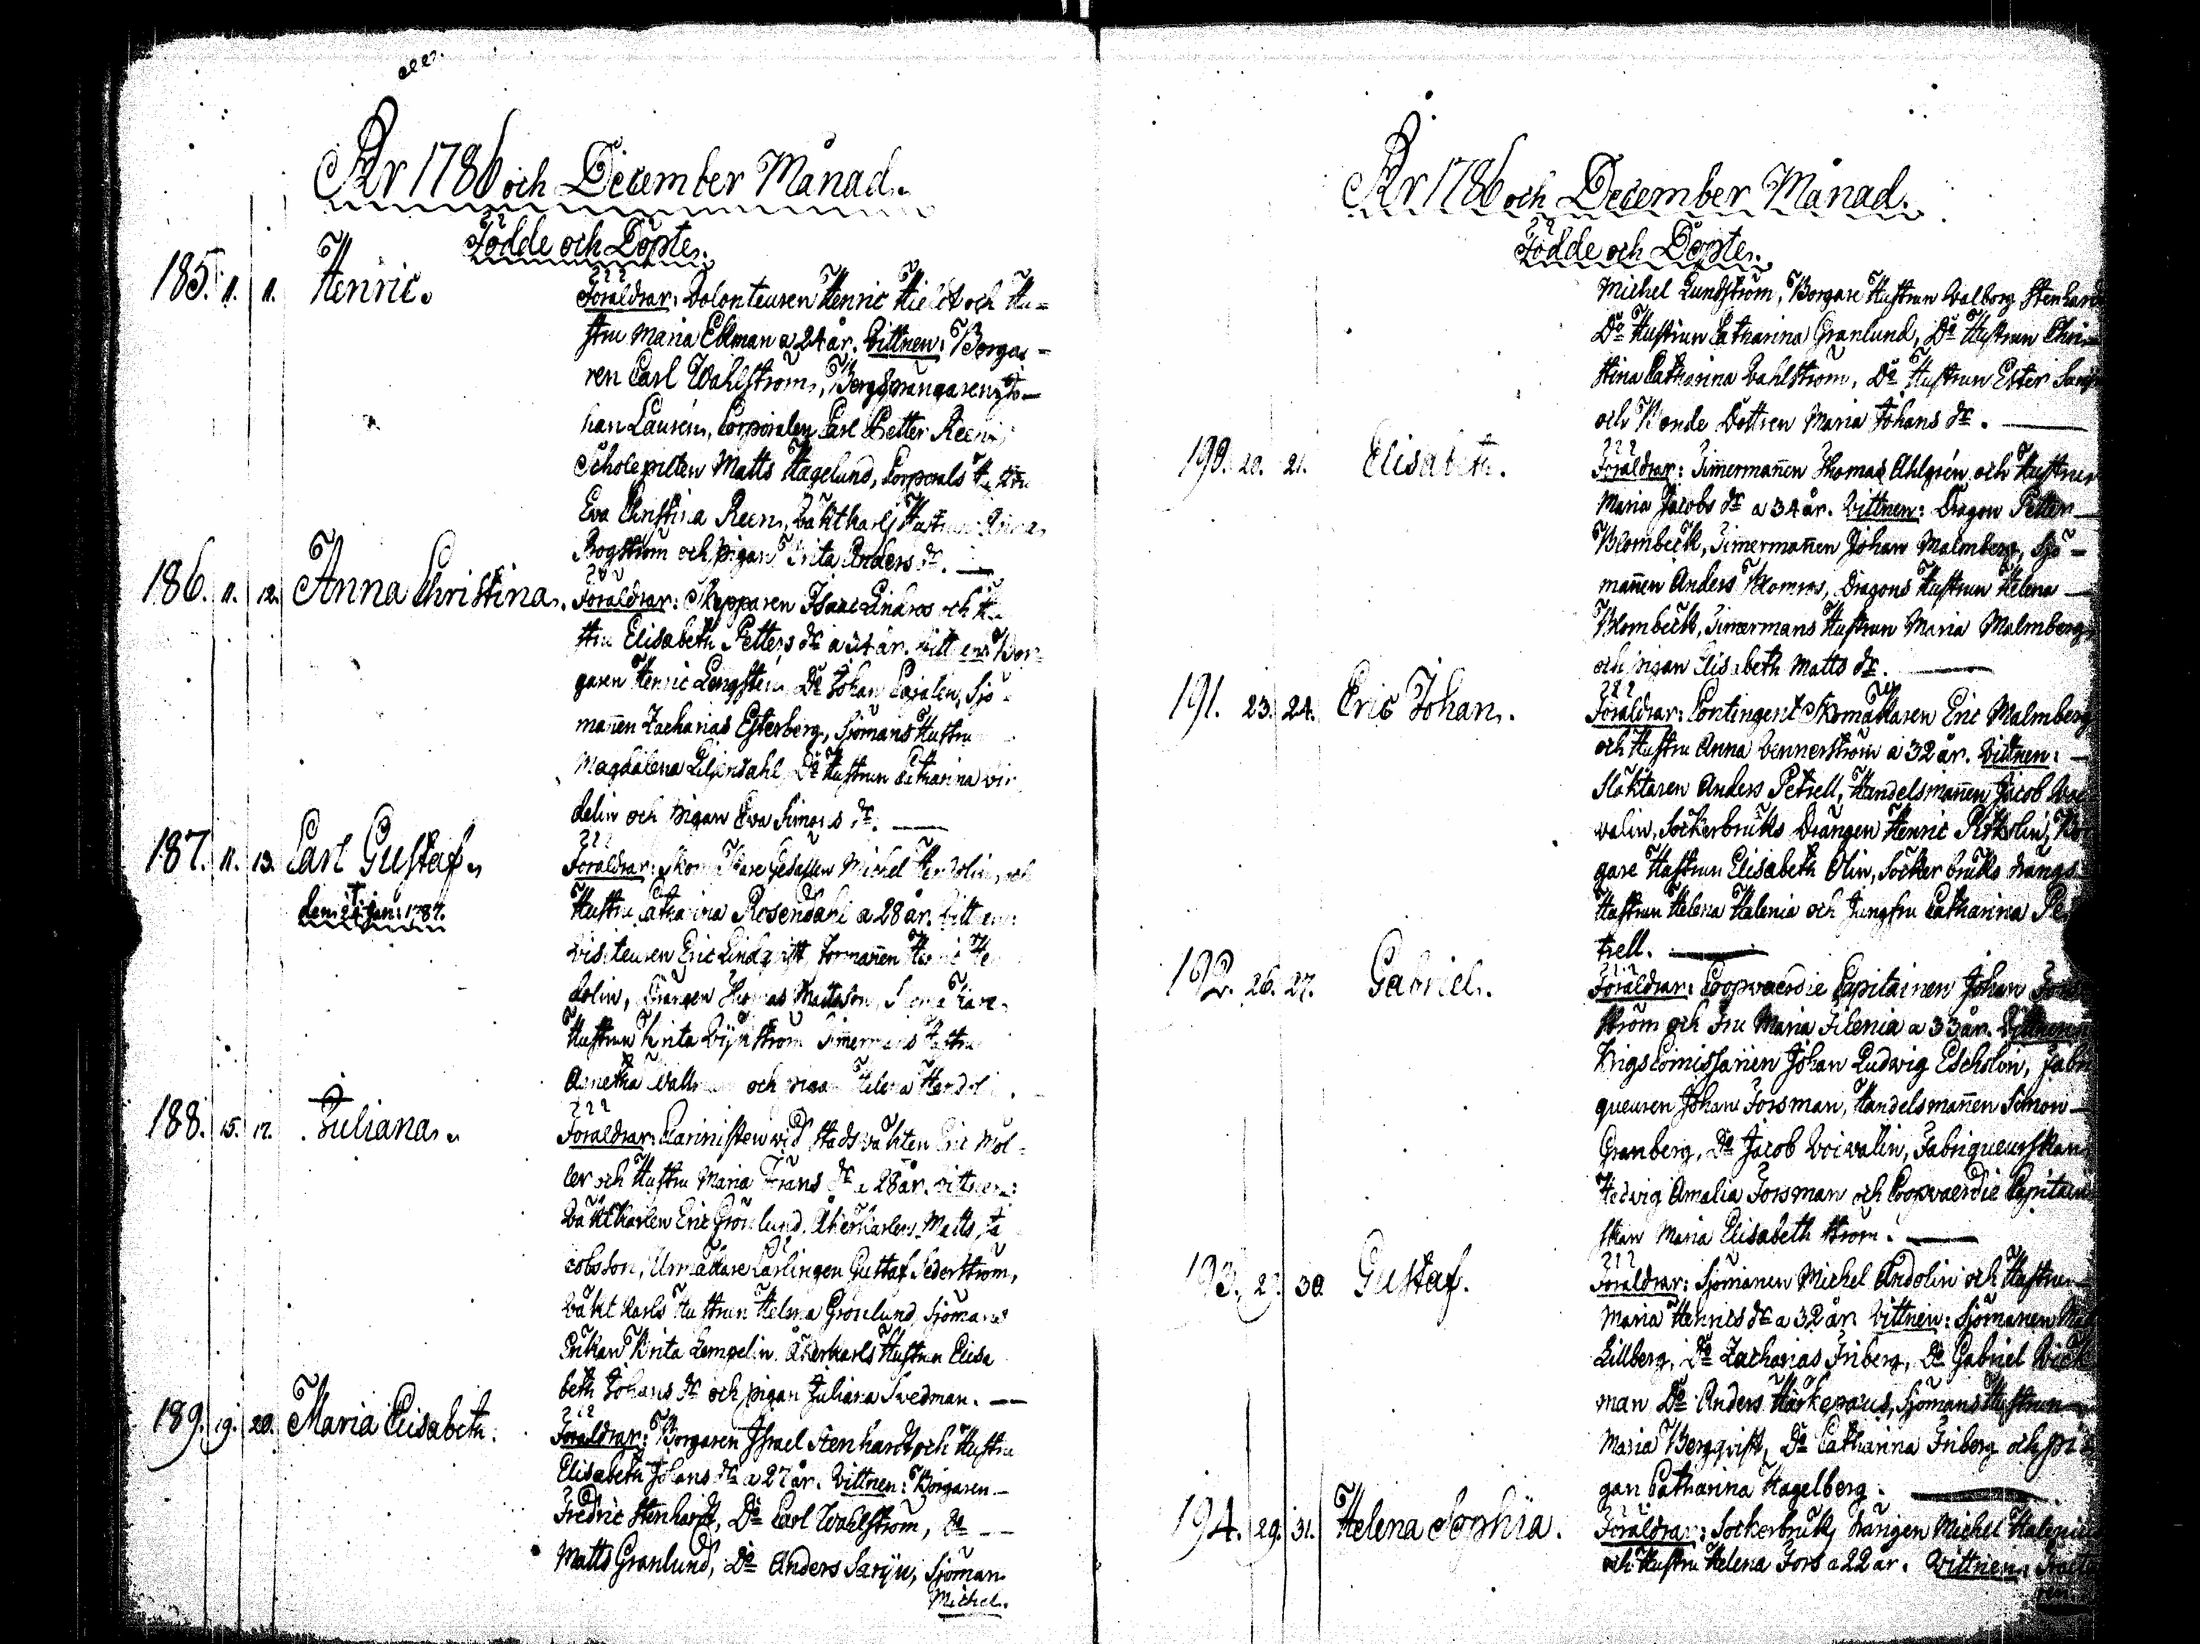 År 1786 och December Månad.
Födde och Döpte.
185. 11. 11. Henric.
Föraldrar: Volonteuren Henric Hielt och Hu=
stru Maria Ekman a 24 år. Vittnen: Borga=
ren Carl Wahlström, Bergsprängaren Jo=
han Laurén, Corporalen Carl Petter Reen
Scholepilten Matts Hagelund, Corporals
Eva Christina Reen, Vaktkarls Hustrun Anna
Bogström och pigan Brita Anders dr.
186. 11. 12. Anna Christina.
Föraldrar: Skepparen Isaac Lindros och
stru Elisabeth Petters dr a 34 år. Vittnen: Bor-
garen Henric Lengstein Do Johan Sjö-
mannen Zacharias Esterberg, Sjömans Hustru
Magdalena Liljendahl Do Hustrun Catharina Vin
delin och pigan Eva Simons dr.
187. 11. 13. Carl Gustaf.
†
den 24 Jan: 1787.
Föraldrar: Michel och
Hustru Catharina Rosendahl a 28 år. Vittnen:
Visiteuren Eric Lindqvist, formannen Henric
dolin, Drängen Thomas Mattsson,
Hustrun Brita Timmermans Hustru
Agnetha och pigan Helena
188. 15. 17. Juliana.
Föraldrar: vid Stadsvakten Eric Möl-
ler och Hustru Maria Frans dr a 28 år. Vittnen:
Vaktkarlen Eric Grönlund. Åkerkarlen Matts Ja
cobsson, Urmakare Lärlingen Gustaf Sederström,
Vaktkarls Hustrun Helena Grönlund, Sjömans
Enkan Brita Lempelin. Åkerkarls Hustrun Elisa
beth Johans dr och pigan Juliana Svedman.
189. 19. 20. Maria Elisabeth.
Föraldrar: Borgaren Israel Stenhardt och Hustru
Elisabeth Johans dr a 27 år. Vittnen: Borgaren
Fredric Stenhardt, Do Carl Wahlström, Do
Matts Granlund, Do Anders Sarju, Sjöman
Michel.
År 1786 och December Månad.
Födde och Döpte.
Michel Lundström, Borgare Hustrun Valborg Stenhardt
Do Hustrun Catharina Granlund, Do Hustrun Chri-
stina Catharina Vahlström, Do Hustrun Ester
och Bonde Dottren Maria Johans dr.
190. 20. 21. Elisabeth.
Föraldrar: Timmermannen Thomas Ahlgrén och Hustrun
Maria Jacobs dr a 34 år. Vittnen: Dragon Petter
Blombeck, Timmermannen Johan Malmberg, Sjö-
mannen Anders Blomros, Dragons Hustrun Helena
Blombeck, Timmermans Hustrun Maria Malmberg
och pigan Elisabeth Matts dr.
191. 23. 24. Eric Johan.
Föraldrar: Contingent Skomakaren Eric Malmberg
och Hustru Anna Vennerström a 32 år. Vittnen:
Slaktaren Anders Petrell, Handelsmannen Jacob Voi
valin, Sockerbruks Drängen Henric Bor
gare Hustrun Elisabeth Olin, Sockerbruks drängs
Hustrun Helena Halenia och Jungfru Catharina Pe
trell.
192. 26. 27. Gabriel.
Föraldrar: Coopvaerdie Capitainen Johan
ström och Fru Maria Filenia a 33 år. Vittnen
Krigscomissarien Johan Ludwig Escholin, Fabri
queuren Johan Forsman, Handelsmannen Simon
Granberg, Do Jacob Voivalin, Fabriqueurskan
Hedvig Amalia Forsman och Coopvaerdie Capitain
skan Maria Elisabeth Ström.
193. 27. 30. Gustaf.
Föraldrar: Sjömannen Michel Andolin och Hustrun
Maria Henrics dr a 32 år. Vittnen: Sjömannen
Lillberg, Do Zacharias Friberg, Do Gabriel Vick
man Do Anders Härkepaeus, Sjömans Hustrun
Maria Bergqvist, Do Catharina Friberg och pi
gan Catharina Hagelberg.
194. 29. 31. Helena Sophia.
Föraldrar: Sockerbruks drängen Michel Halenius
och Hustru Helena Fors a 22 år. Vittnen: